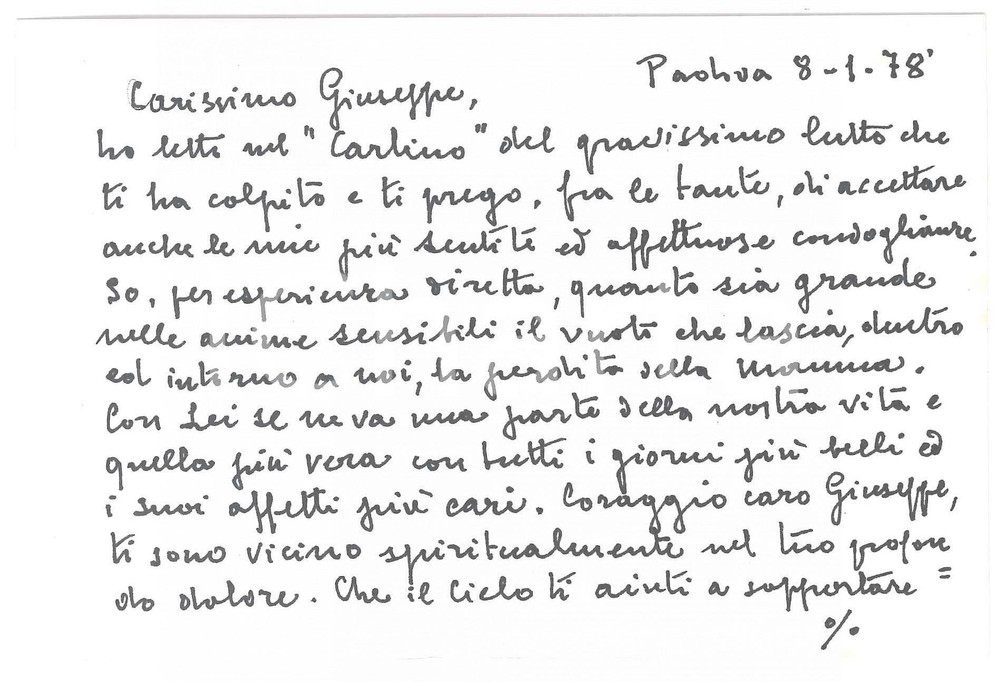 Padova 8-1-78'
Carissimo Giuseppe,
ho letto nel "Carlino" del gravissimo lutto che
ti ha colpito e ti prego, fra le tante, di accettare
anche le mie più sentite ed affettuose condoglianze.
So, per esperienza diretta, quanto sia grande
nelle anime sensibili il vuoto che lascia, dentro
ed intorno a noi, la perdita della Mamma.
Con Lei se ne va una parte della nostra vita e
quella più vera con tutti i giorni più belli ed
i suoi affetti più cari. Coraggio caro Giuseppe,
ti sono vicino spiritualmente nel tuo profon
do dolore. Che il Cielo ti aiuti a sopportare =
%.